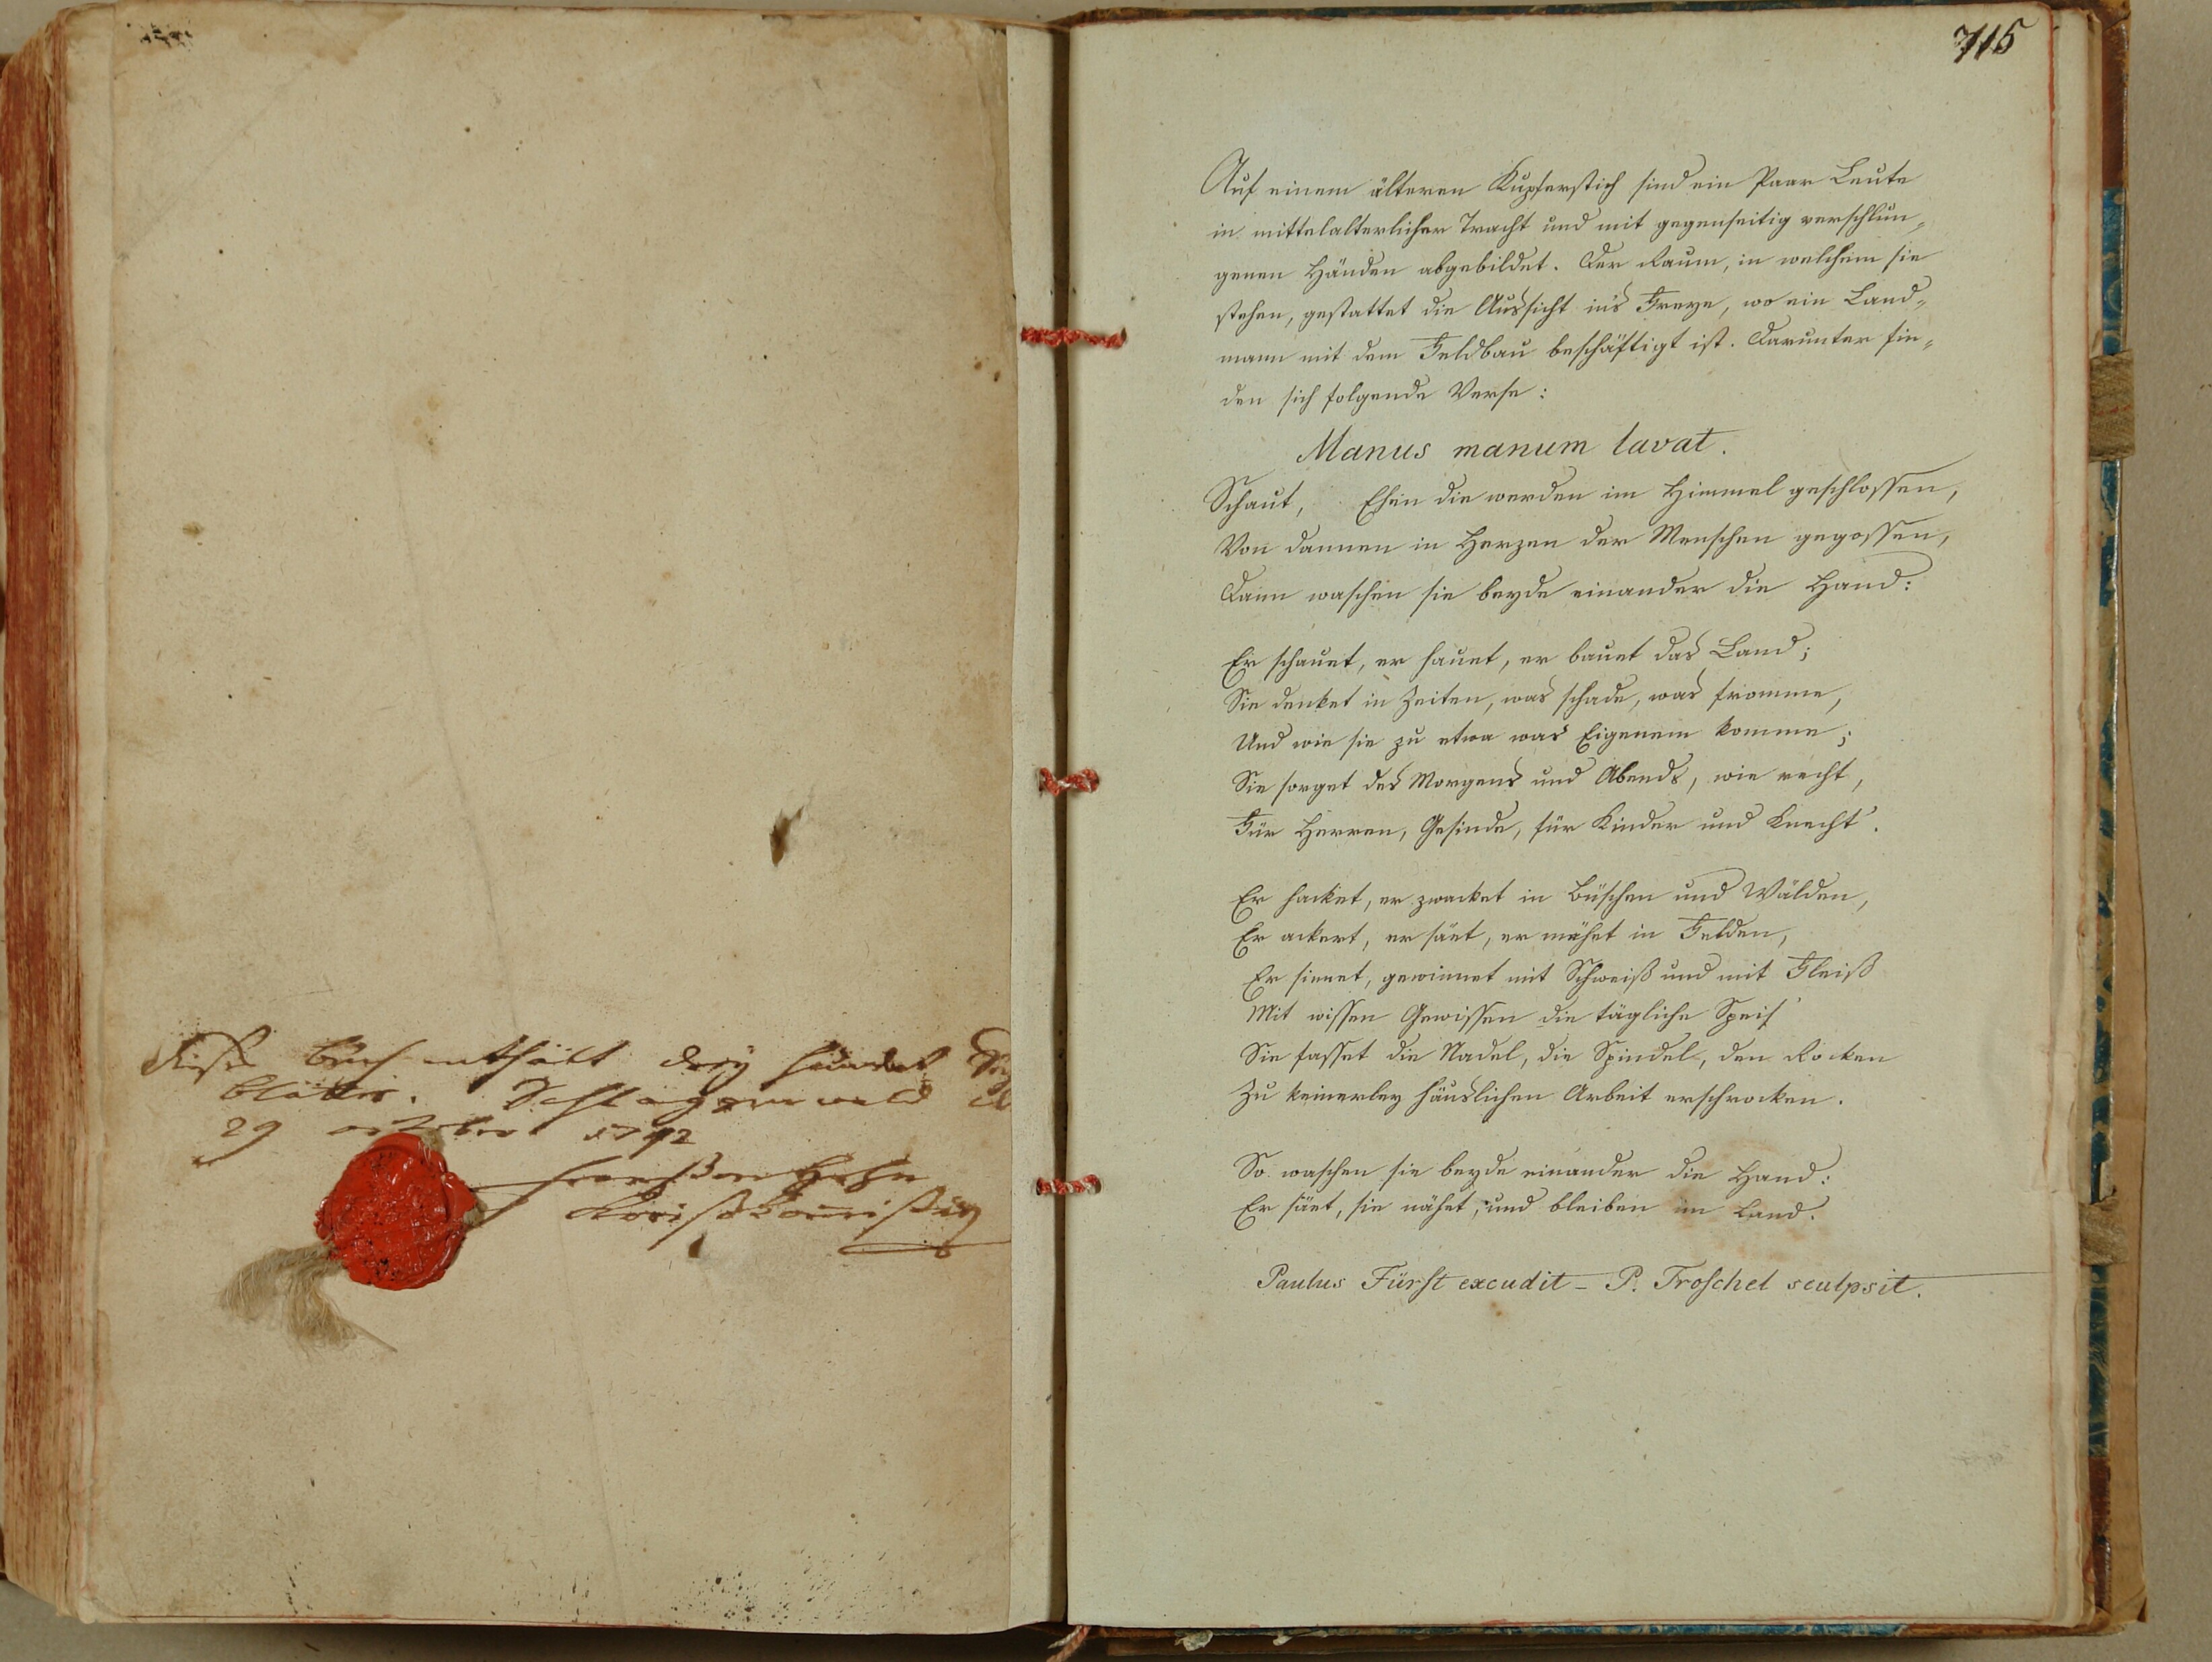 dieses Buch enthält drey hundert
blätter. Schlaggenwald
29 october 1792
715
Auf einem älteren Kupferstich sind ein Paar Leute
in mittelalterlicher Tracht und mit gegenseitig verschlun„
genen Händen abgebildet. Der Raum, in welchem sie
stehen, gestattet die Aussicht in's Freye, wo ein Land„
mann mit dem Feldbau beschäftigt ist. Darunter fin„
den sich folgende Verse:
Manus manum lavat.
Schaut, Ehen die werden im Himmel geschlossen,
Von dannen in Herzen der Menschen gegossen,
Dann waschen sie beyde einander die Hand:
Er schauet, er hauet, er bauet das Land;
Sie denket in Zeiten, was schade, was fromme,
Und wie sie zu etwa was Eigenem komme;
Sie sorget des Morgens und Abends, wie recht,
Für Herren, Gesinde, für Kinder und Knecht'.
Er hacket, er zwacket in Büschen und Wälden,
Er ackert, er säet, er mähet in Felden,
Er sinnet, gewinnet mit Schweiß und mit Fleiß
Mit wissen Gewissen die tägliche Speis'
Sie fasset die Nadel, die Spindel, den Rocken
Zu keinerley häuslichen Arbeit erschrocken.
So waschen sie beyde einander die Hand:
Er säet, sie nähet, und bleiben im Land.
Paulus Fürst excudit – P. Troschel sculpsit.